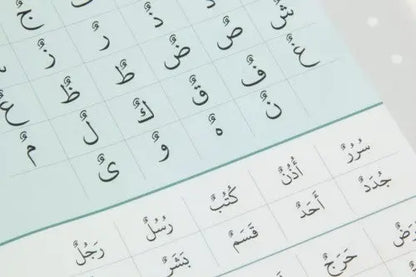 ذٌ رٌ زٌ
شٌ صٌ ضٌ طٌ ظٌ عٌ
غٌ فٌ قٌ كٌ لٌ مٌ
نٌ هٌ وٌ ىٌ
سُرُرٌ أُذُنٌ كُتُبٌ رُسُلٌ رَجُلٌ
جُدَدٌ أَحَدٌ قَسَمٌ بَشَرٌ
حَرَجٌ